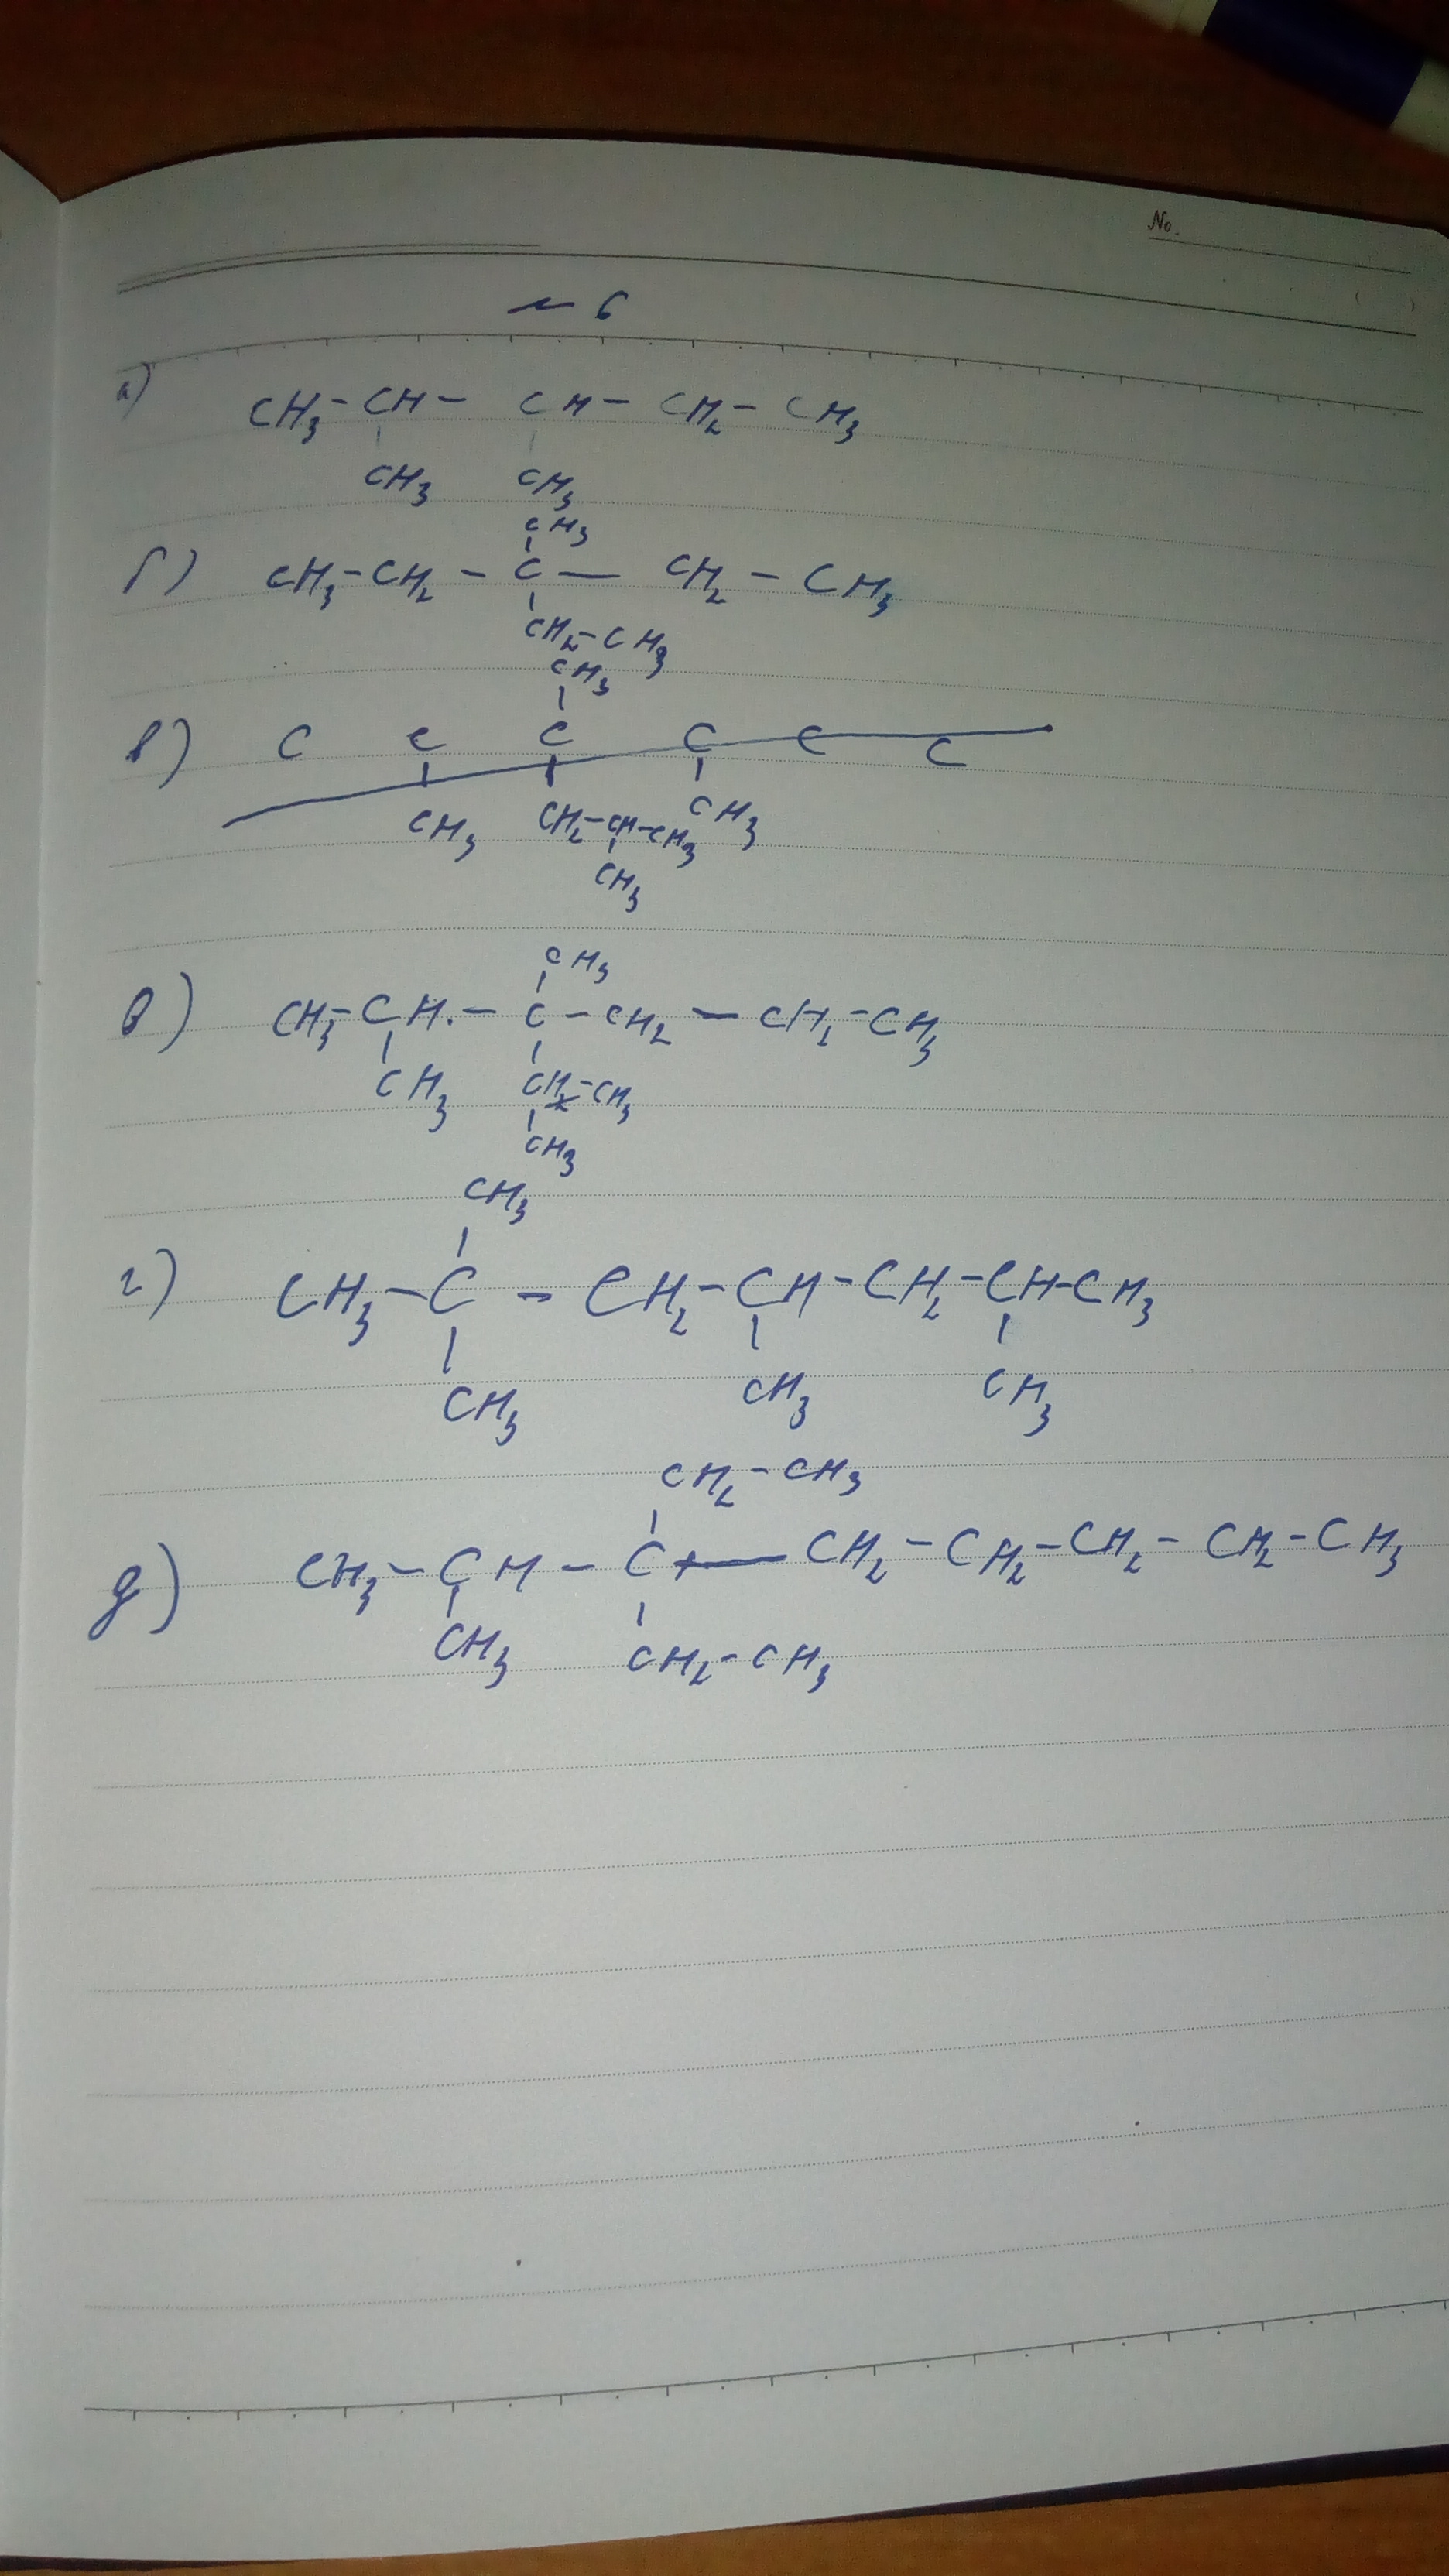 No.
( )
№ 6
а) CH3-CH- CH- CH2- CH3
CH3 CH3
CH3
б) CH3-CH2 - C — CH2 - CH3
CH2-CH3
CH3
в) C C C C C C
CH3 CH2-CH-CH3 CH3
CH3
CH3
в) CH3-CH.- C - CH2 — CH2-CH3
CH3 CH-CH3
CH3
CH3
г) CH3-C - CH2-CH-CH2-CH-CH3
CH3 CH3 CH3
CH2-CH3
д) CH3-CH - C — CH2-CH2-CH2-CH2-CH3
CH3 CH2-CH3